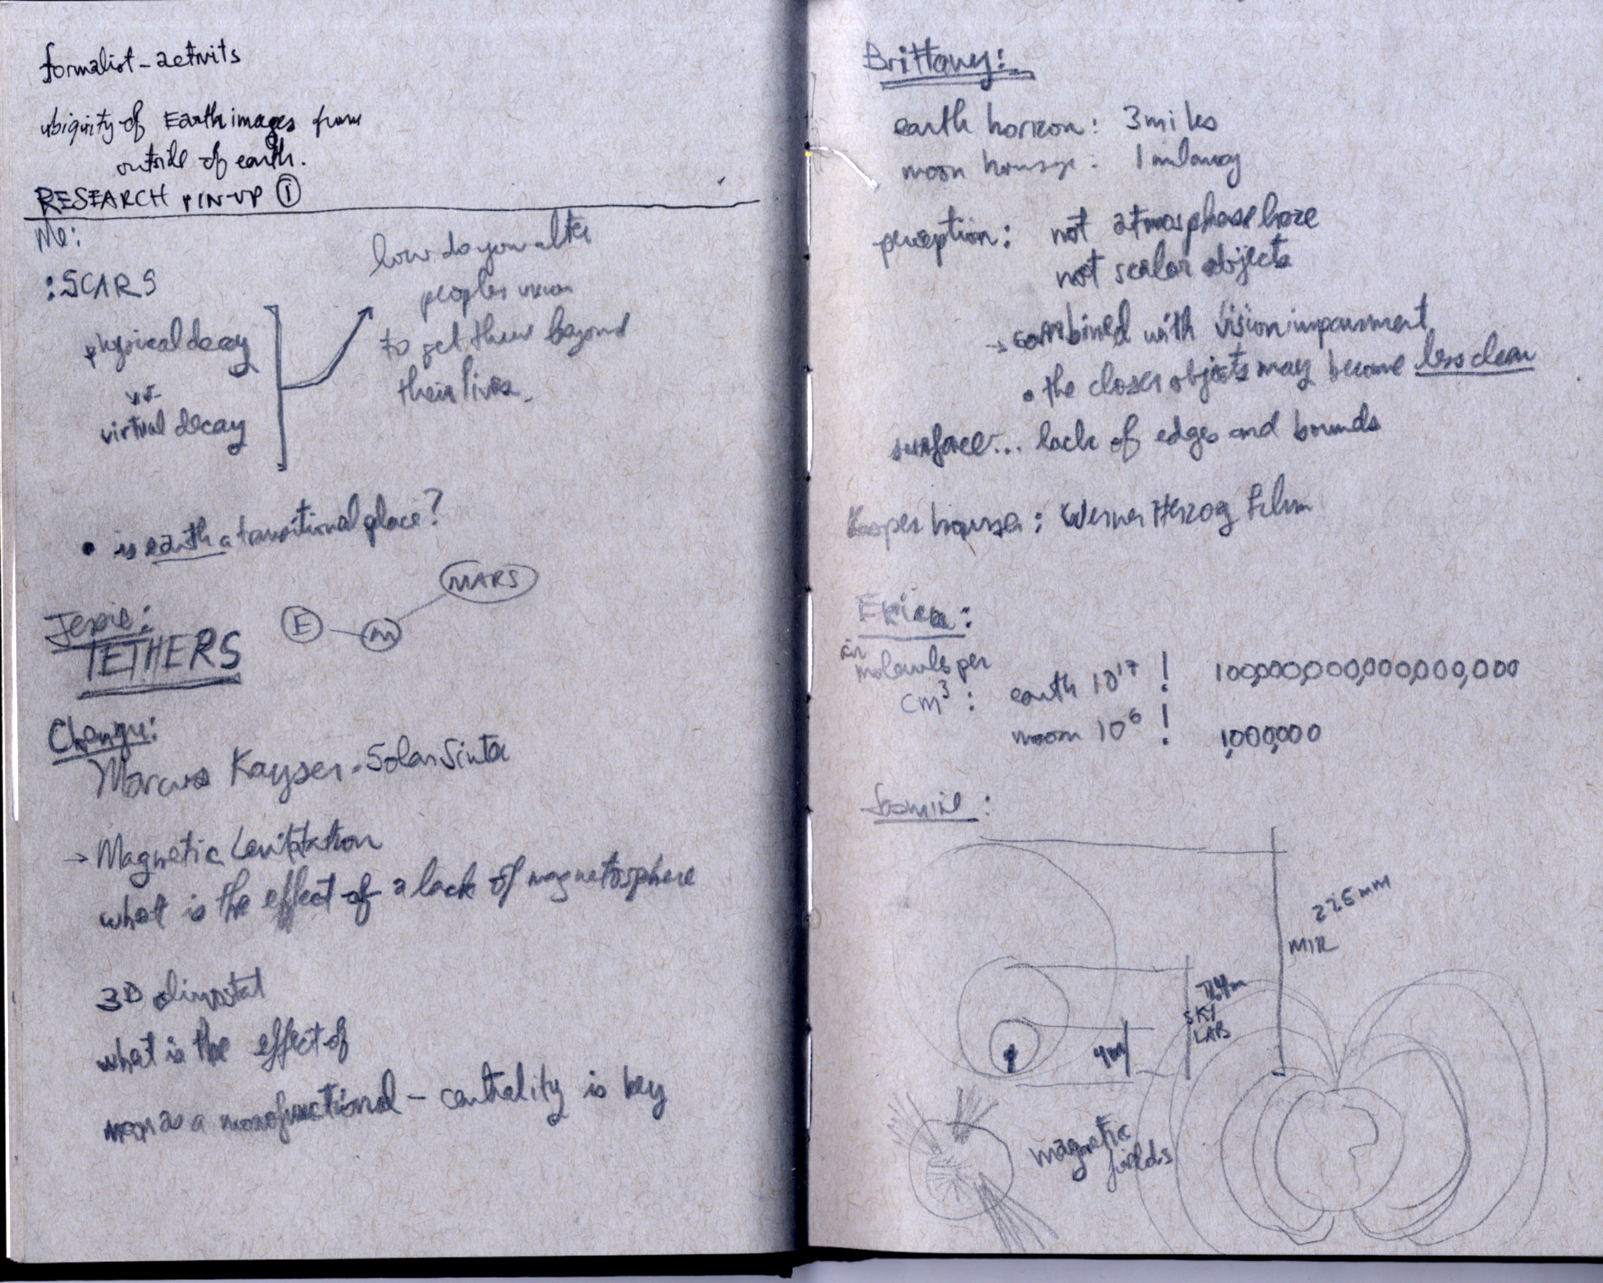 formalist - activits
ubiquity of Earth images from
outside of earth.
RESEARCH PIN-UP ①
Me:
: SCARS
physical decay
vs.
virtual decay
how do you alter
peoples vision
to get them beyond
their lives.
• is earth a transitional place?
E
m
MARS
TETHERS
Marcus Kayser - Solar Sinter
→ Magnetic Levitation
what is the effect of a lack of magnetosphere
3D
what is the effect of
as a monofunctional - centrality is key
Brittany:
earth horizon: 3 miles
moon : 1 mi away
perception: not atmosphase haze
not scalar objects
→ combined with vision impairment
• the closer objects may become less clear
surface... lack of edges and bounds
Werner Herzog Film
Erica:
molecules per
cm³: earth 10¹⁷ ! 100,000,000,000,000,000
moon 10⁶ ! 1,000,000
MIR
SKY
LAB
4m
magnetic
fields